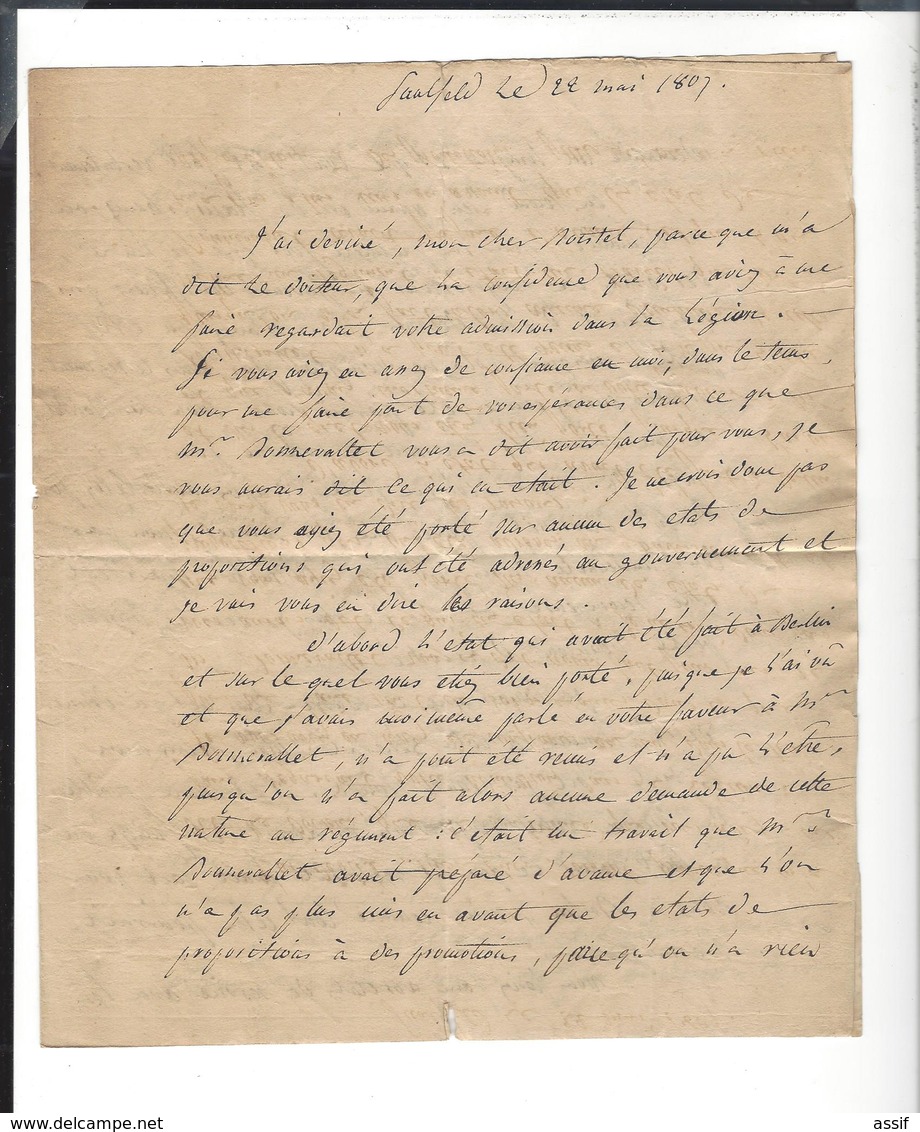 Saalfeld le 22 mai 1807.
J'ai deviné, mon cher Doistel, parce que m'a
dit le docteur, que la confidence que vous aviez à me
faire regardait votre admission dans la Légion.
Si vous aviez eu assez de confiance en moi, dans le tems,
pour me faire part de vos espérances dans ce que
Mr. Donnevallet vous a dit avoir fait pour vous, je
vous aurais dit ce qui en etait. Je ne crois donc pas
que vous ayiez été porté sur aucun des etats de
propositions qui ont été adressés au gouvernement et
je vais vous en dire les raisons.
d'abord l'etat qui avait été fait à Berlin
et sur le quel vous etiez bien porté, puisque je l'ai vû
et que j'avais moi même parlé en votre faveur à Mr.
Donnevallet, n'a point été remis et n'a pû l'etre,
puisqu'on n'a fait alors aucune demande de cette
nature au régiment: c'etait un travail que Mr.
Donnevallet avait préparé d'avance et que l'on
n'a pas plus mis en avant que les etats de
propositions à des promotions, parce qu'on n'a rien
assif